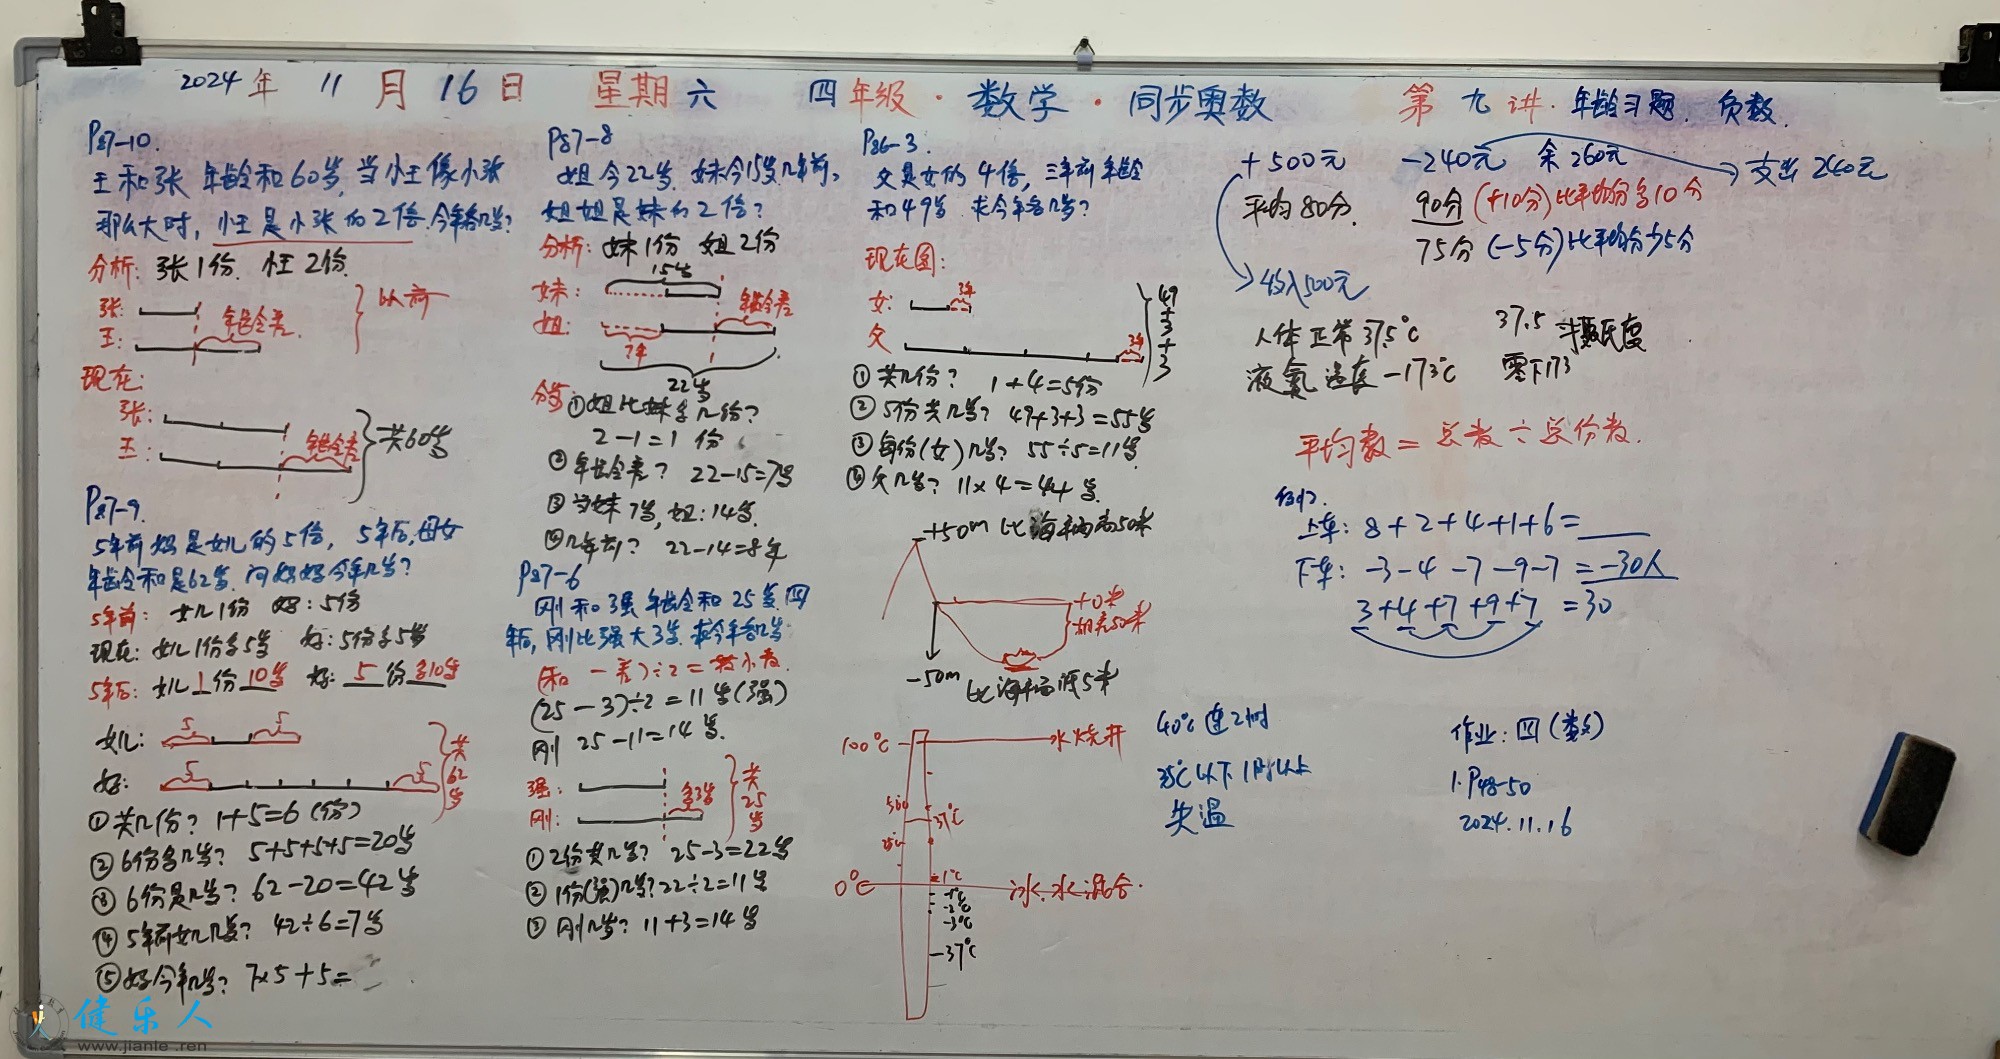 2024年 11月16日 星期六 四年级·数学·同步奥数 第九讲·年龄习题、负数.
P87-10.
王和张 年龄和60岁,当小王像小张
那么大时,小王是小张的2倍.今年各几岁?
分析:张1份. 小王2份.
张:
王: 年龄差.
以前
现在:
张:
王: 年龄差
共60岁
P87-9.
5年前妈是女儿的5倍, 5年后,母女
年龄和是62岁.问妈妈今年几岁?
5年前: 女儿1份 妈:5份
现在:女儿1份多5岁 妈:5份多5岁
5年后:女儿1份10岁 妈:5份多10岁
女儿: 5 5
妈: 5 5
共62岁
①共几份? 1+5=6(份)
②6份多几岁? 5+5+5+5=20岁
③6份是几岁? 62-20=42岁
④5年前女儿几岁? 42÷6=7岁
⑤妈今年几岁? 7×5+5=
P87-8
姐今22岁.妹今15岁.几年前,
姐姐是妹的2倍?
分析:妹1份 姐2份
15岁
妹: 年龄差
姐:
7年
22岁
①姐比妹多几份?
2-1=1 份
②年龄差? 22-15=7岁
③当妹7岁,姐:14岁.
④几年前? 22-14=8年
P87-6
刚和强年龄和25岁.四
年后,刚比强大3岁.求今年各几岁
(和-差)÷2=较小数.
(25-3)÷2=11岁(强)
刚 25-11=14岁.
强:
刚: 多3岁
共25岁
①2份共几岁? 25-3=22岁
②1份(强)几岁?22÷2=11岁
③刚几岁? 11+3=14岁
P86-3.
父是女的4倍,三年前年龄
和49岁 求今年各几岁?
现在图:
女: 3年
父 3年
49+3+3
①共几份? 1+4=5份
②5份共几岁? 49+3+3=55岁
③每份(女)几岁? 55÷5=11岁
④父几岁? 11×4=44岁.
+50m 比海平面高50米
+0米
-50m
100℃ 水烧开
37℃
0℃ 冰、水混合.
1℃
-1℃
-2℃
-3℃
-37℃
+500元 -240元 余260元 支出240元
平均80分. 90分(+10分)比平均分多10分
75分(-5分)比平均分少5分
收入500元
人体正常37.5℃ 37.5 摄氏度
液氮温度-173℃ 零下173
平均数=总数÷总份数.
例2.
上车:8+2+4+1+6=
下车:-3-4-7-9-7=-30人
3+4+7+9+7=30
40℃ 连2小时
35℃以下1小时以上
失温
作业:四(数)
1.P48-50
2024.11.16
健乐人
www.jianle.ren